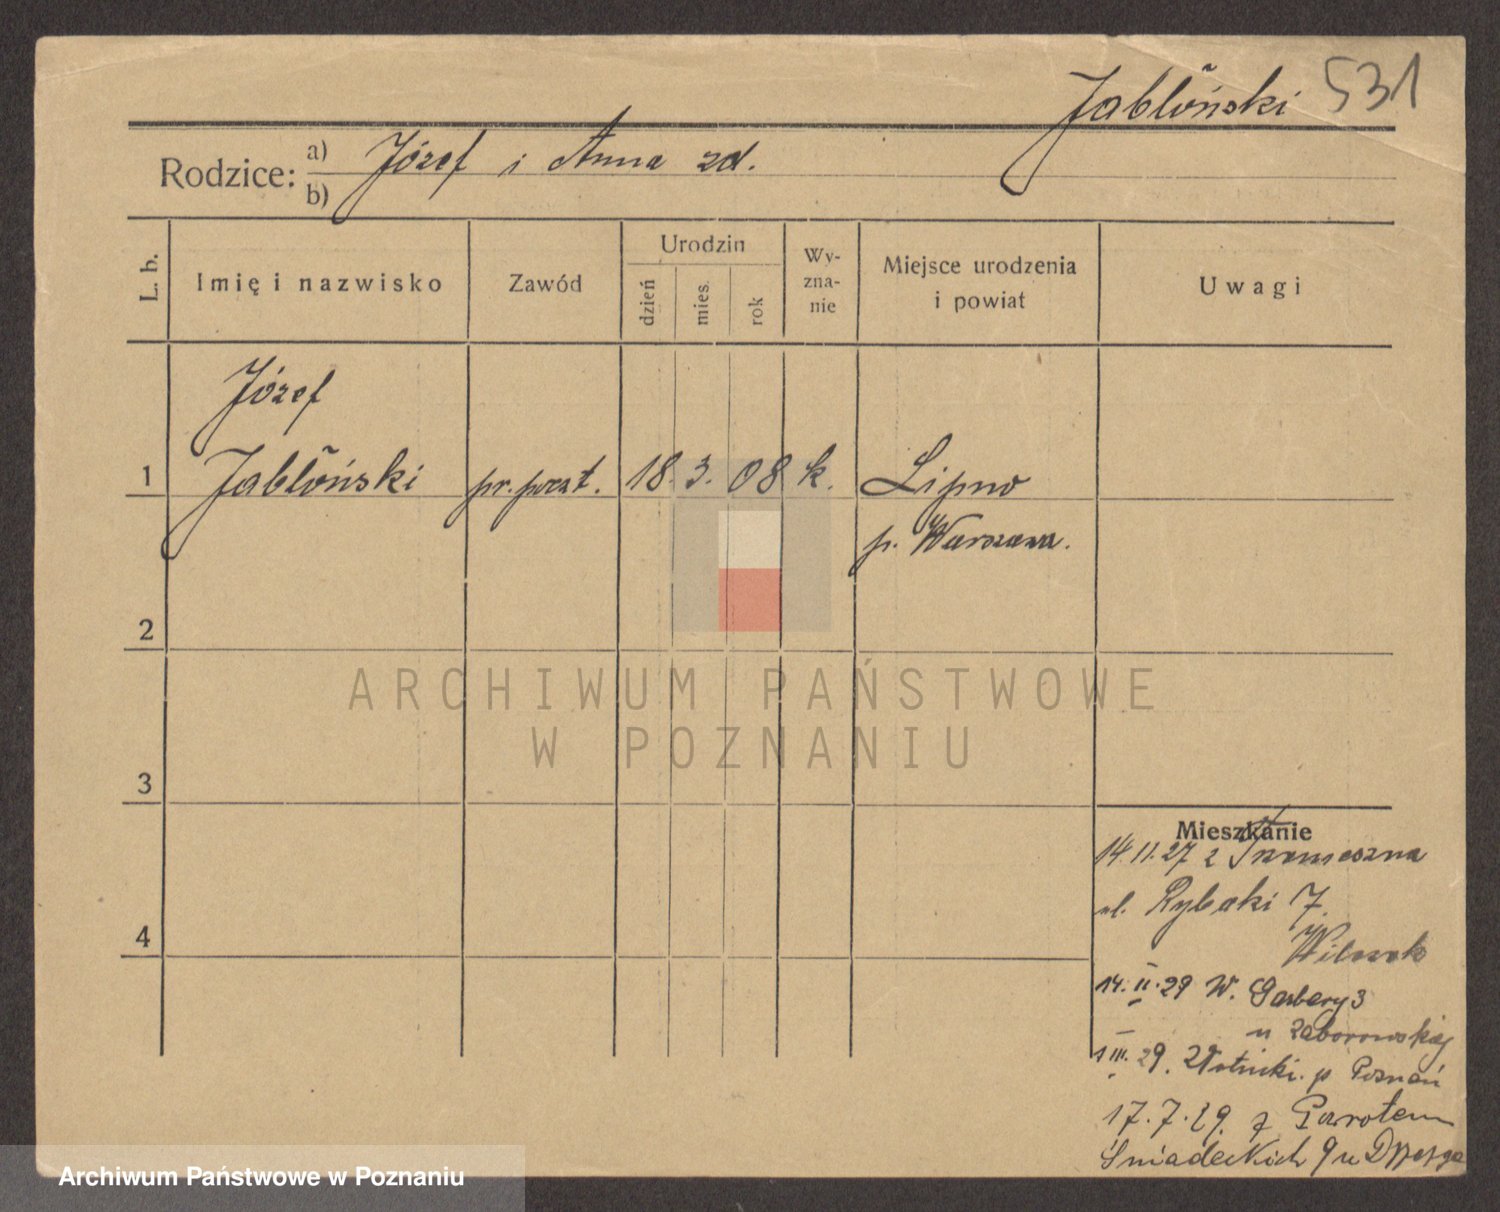 Jabłoński 531
Rodzice: a) Józef i Anna zd.
b)
L. b.
Imię i nazwisko
Zawód
Urodzin
dzień
mies.
rok
Wy-
zna-
nie
Miejsce urodzenia
i powiat
Uwagi
Józef
1 Jabłoński pr. poczt. 18. 3. 08 k. Lipno
p. Warszawa.
2
ARCHIWUM PAŃSTWOWE
W POZNANIU
3
Mieszkanie
14.11.27 z Trzemeszna
4 ul. Rybaki 7.
14.II.29 W. Garbary 3
u Zaborowskiej
1 III. 29. p Poznań
17.7.29. z Powrotem
Śniadeckich 9 u
Archiwum Państwowe w Poznaniu